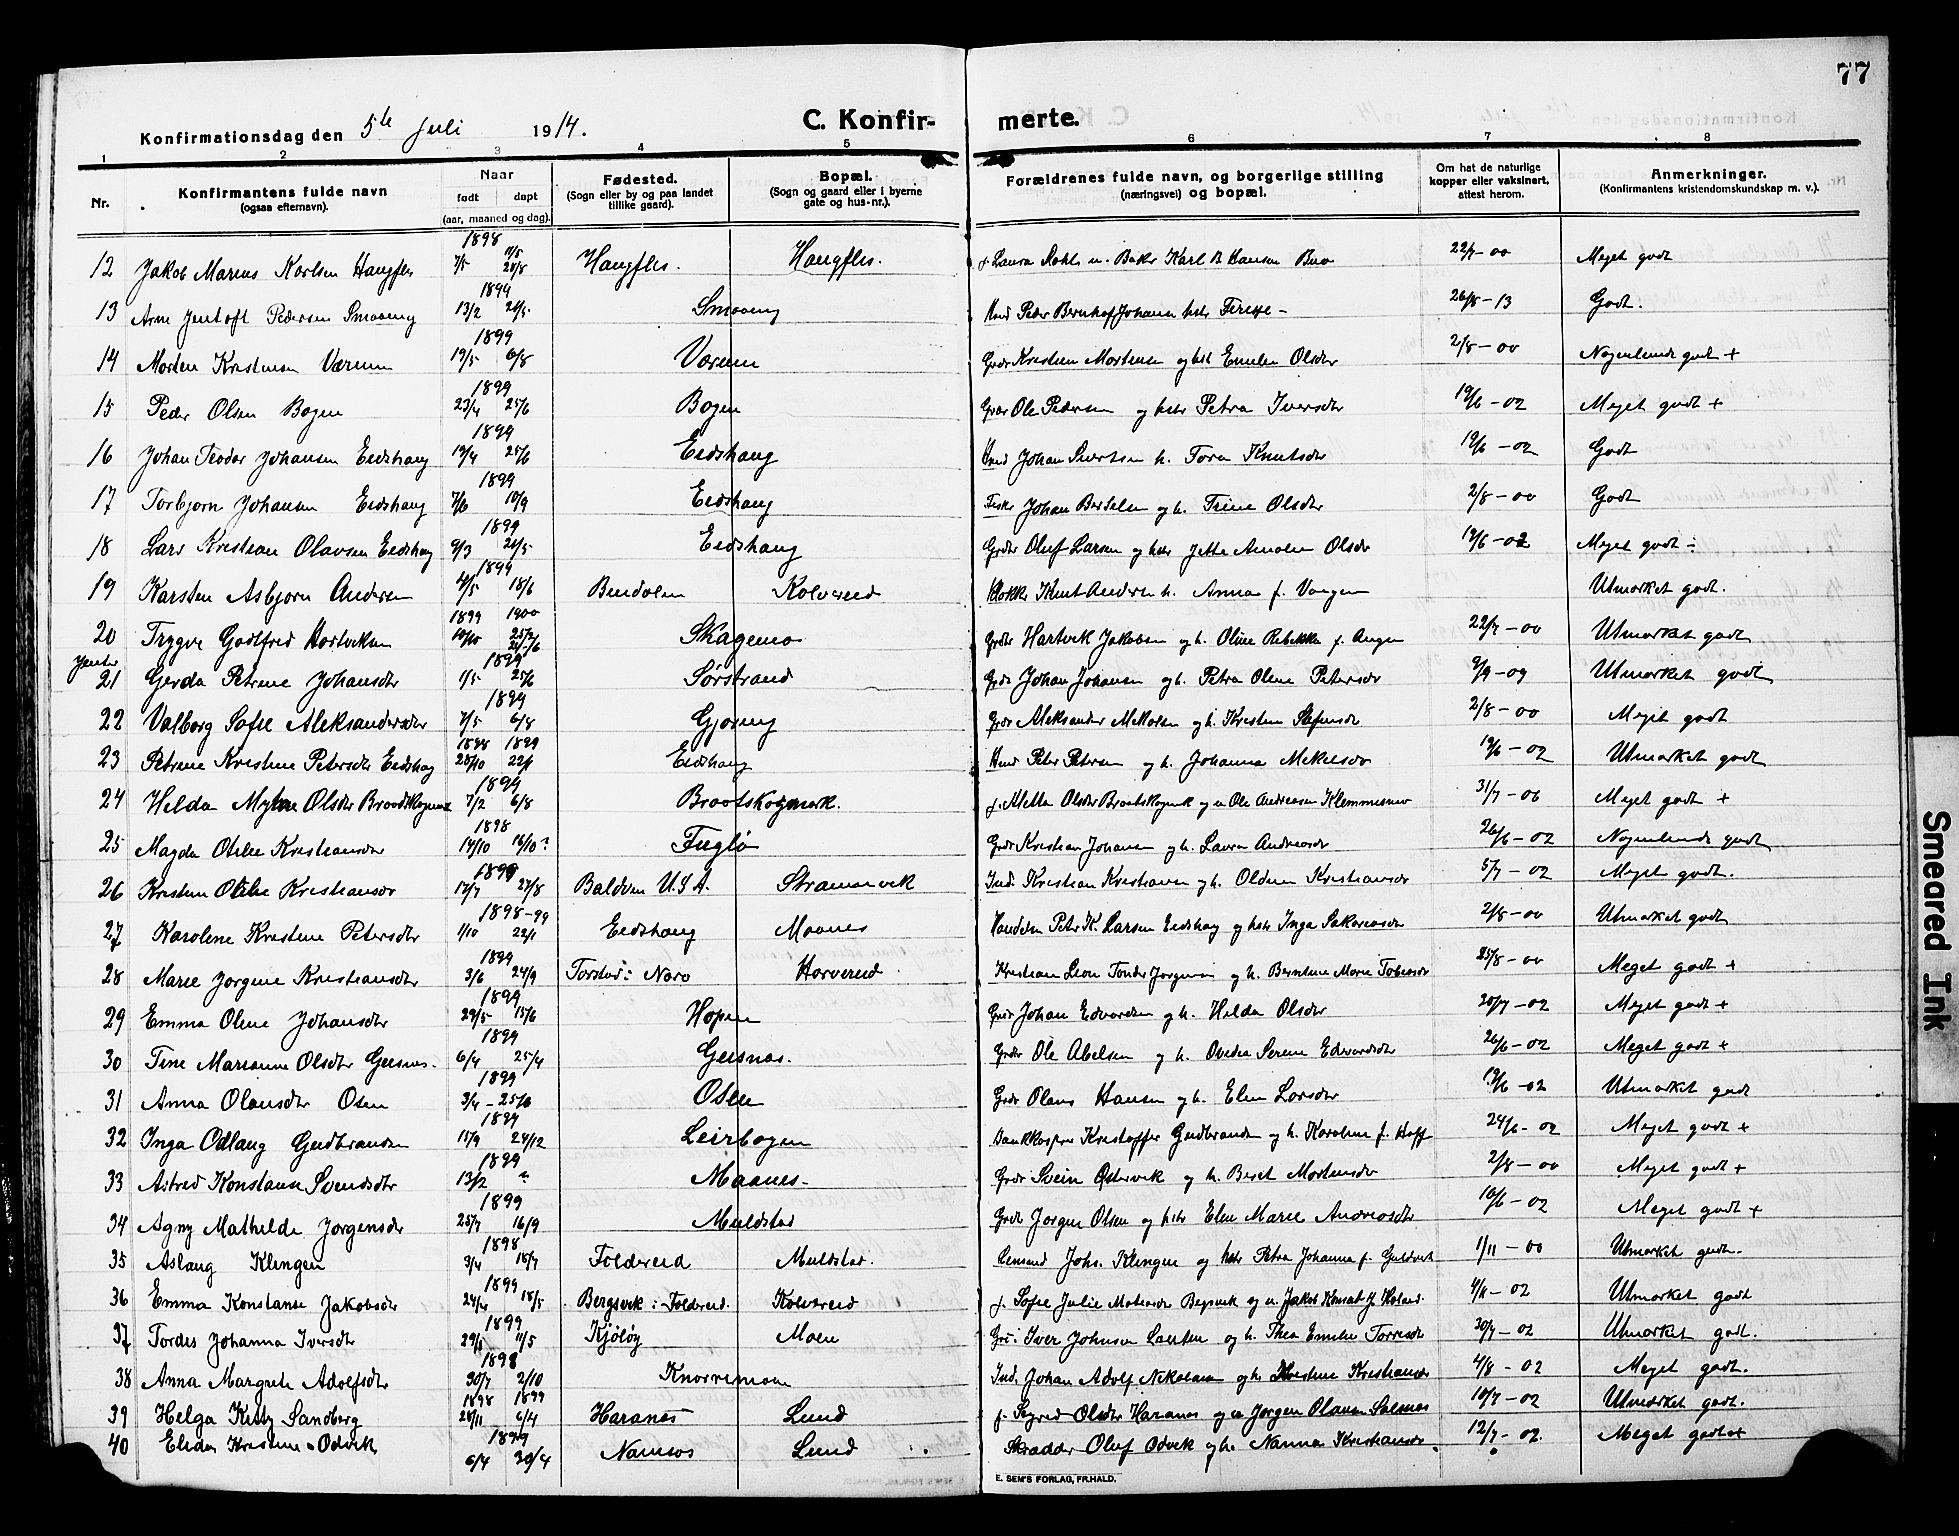 77
Konfirmationsdag den 5te Juli 1914.
C. Konfir- merte.
1 2 3 4 5 6 7 8
Nr. Konfirmantens fulde navn (ogsaa efternavn). Naar født døpt (aar, maaned og dag). Fødested. (Sogn eller by og paa landet tillike gaard). Bopæl. (Sogn og gaard eller i byerne gate og hus-nr.). Forældrenes fulde navn, og borgerlige stilling (næringsvei) og bopæl. Om hat de naturlige kopper eller vaksinert, attest herom. Anmerkninger. (Konfirmantens kristendomskundskap m. v.).
12 Jakob Marius Karlsen Haugfles 1898 7/5 Haugfles. Haugfles. Karl Hansen 22/7-00 Meget godt
13 Arne Jentoft Pedersen Smaaeng 1899 13/2 Smaaeng Johansen 26/8-13 Godt.
14 Morten Kristensen Værum 1899 19/5 6/8 Værum Grdr Kristen Mortensen og hst Emelie Olsdtr 2/8-00 Nogenlunde godt +
15 Peder Olsen Bogen 1899 23/4 25/6 Bogen Grdr Ole Pedersen og hstr Petra Iversdtr 19/6-02 Meget godt +
16 Johan Teodor Johansen Eidshaug 1899 19/4 25/6 Eidshaug Johan Sivertsen h. Tora Knutsdtr 19/6-02 Godt
17 Torbjørn Johansen Eidshaug 1899 7/6 10/9 Eidshaug Fisker Johan Bertelsen og h. Trine Olsdtr 2/8-00 Godt
18 Lars Kristian Olavsen Eidshaug 1899 9/3 Eidshaug Grdbr Oluf Larsen og hstr Jette Amalie Olsdtr 19/6-02 Meget godt ÷
19 Karsten Asbjørn Andersen 1899 4/5 18/6 Bindalen Kolvereid Klokker Knut Andersen h. Anna f. Vangen Utmerket godt.
20 Trygve Godtfred Hartviksen 1899 1900 Skagemo Grdbr Hartvik Jakobsen og h. Oline Rebekka f. Augen 22/7-00 Utmerket godt
Jenter
21 Gerda Petrine Johansdtr 1899 1/5 25/6 Sørstrand Grdr Johan Johansen og h. Petra Oline Petersdtr 9/9-09 Utmerket godt
22 Valborg Sofie Aleksandersdtr 1899 7/5 6/8 Gjøring Grdr Aleksander Mikalsen og h. Kristine 2/8-00 Meget godt
23 Petrine Kristine Petersdtr Eidshaug 1898 1899 28/10 22/1 Eidshaug Peter Petersen og h. Johanna Mikelsdtr 19/6-02 Utmerket godt
24 Helda Olsdtr 1899 7/2 6/8 Ole Andreassen Klemmesen 31/7-06 Meget godt +
25 Magda Otilie Kristiansdtr 1898 14/10 16/10? Fuglø Grdr Kristian Johansen og h. Laura Andreasdtr 26/6-02 Nogenlunde godt
26 Kristine Otilie Kristiansdtr 1899 17/7 27/8 Baldvin U.S.A. Strømsvik Ind. Kristian Kristiansen og h. Oldine Kristiansdtr 5/7-02 Meget godt.
27 Karoline Kristine Petersdtr 1898-99 1/10 22/1 Eidshaug Maanes Handelsm Peter K. Larsen Eidshaug og hstr Inga Sakariasdtr 2/8-00 Utmerket godt
28 Marie Jørgine Kristiansdtr 1899 3/6 24/9 Torstad i Nærø Horvereid Kristian Leon Tonder Jørgensen og h. Berntine Marie Tobiasdtr 25/8-00 Meget godt +
29 Emma Oline Johansdtr 1899 29/5 15/6 Hopen Grdr Johan Edvardsen og h. Helda Olsdtr 20/7-02 Meget godt +
30 Tine Marianne Olsdtr Geisnes. 1899 6/4 25/4 Geisnes. Grdbr Ole Abelsen og h. Ovedia Serine Edvardsdtr 26/6-02 Meget godt +
31 Anna Olausdtr Osen 1899 3/4-25/6 Osen Grdr Olaus Hansen og h. Elen Larsdtr 19/6-02 Utmerket godt
32 Inga Odlaug Gudbrandsen 1899 15/9 24/12 Leirbogen Kristoffer Gudbrandsen og h. Karoline f. Hoff 24/6-02 Meget godt +
33 Astred Konstanse Svendsdtr 1899 13/2 ? Maanes. Grdr Svein Østervik og h. Beret Mortensdtr 2/8-00 Meget godt +
34 Agny Mathilde Jørgensdtr 1899 25/7 16/9 Muldstad Grdr Jørgen Olsen og hstr Elen Marie Andreasdtr 16/6-02 Meget godt +
35 Aslaug Klingen 1898 3/4 18/7 Foldereid Muldstad. Lensmd Johs. Klingen og hstr Petra Johanna f. Guldvik 1/11-00 Utmerket godt.
36 Emma Konstanse Jakobsdtr 1899 24/4 18/5 Bergsvik i Foldereid. Kolvereid f. Sofie Julie Bergsvik 4/6-02 Utmerket godt
37 Tordis Johanna Iversdtr 1899 11/5 Kjøløy Moen Iver Johnsen og h. Thea Emilie 30/7-02 Utmerket godt.
38 Anna Margrete Adolfsdtr 1898 30/7 2/10 Knarremoen Ind. Johan Adolf Nikolaisen og h. Kristine Kristiansdtr 4/8-02 Meget godt.
39 Helga Kitty Sandberg 1898 1899 28/11 6/4 Haranes Lund f. Sigrid Olsdtr Haranes og u Jørgen Olausen Salsnes 10/7-02 Utmerket godt.
40 Elida Kristine Odvik 1899 6/4 30/4 Namsos Lund Skrædder Oluf Odvik og h. Nanna Kristiansdtr 12/7-02. Meget godt +
E. SEM'S FORLAG, FR.HALD.
Smeared Ink